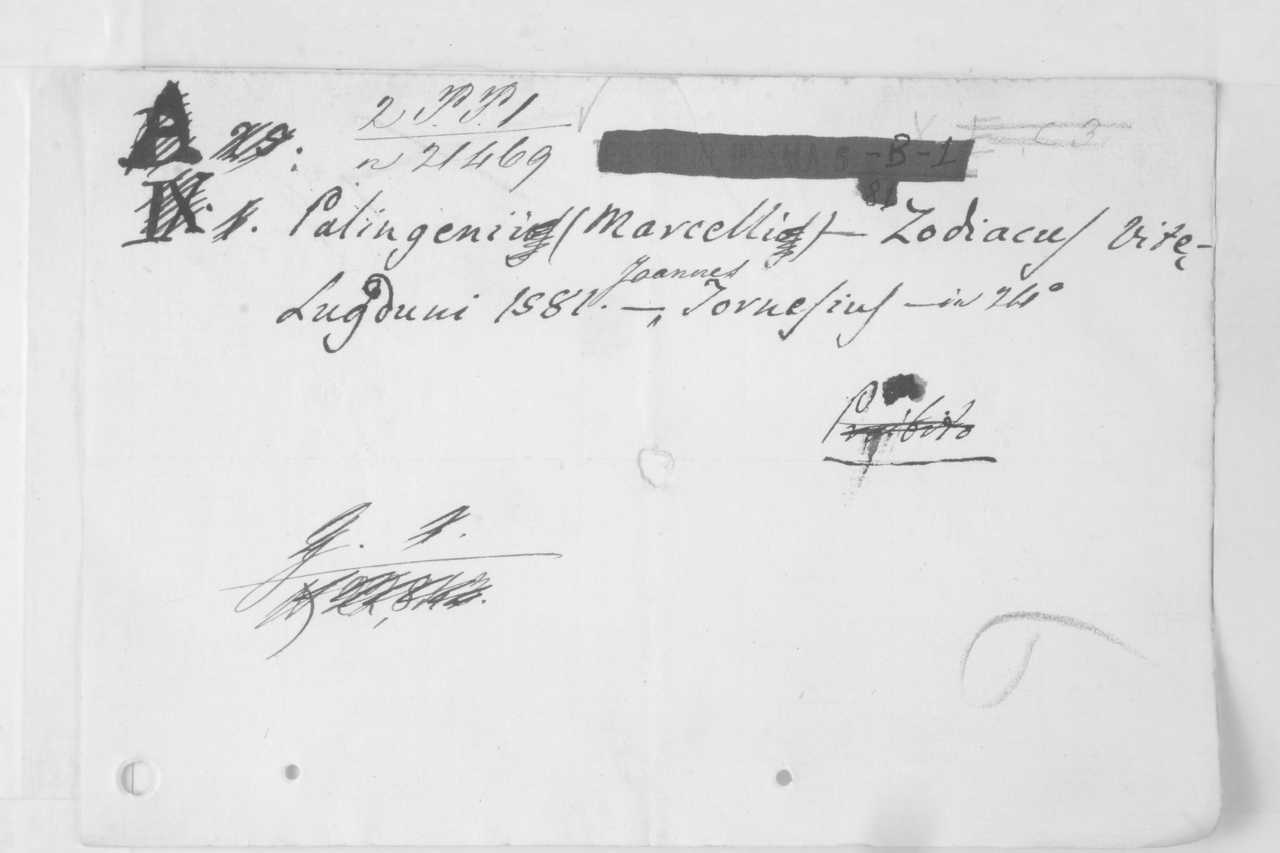 2 P.P. 1
n 21469
-B-1
81
C 3
IX. 1. Palingenii (Marcelli) — Zodiacus Vitę -
Lugduni 1581. — Joannes Tornesius — in 24°
Proibito
G. 1.